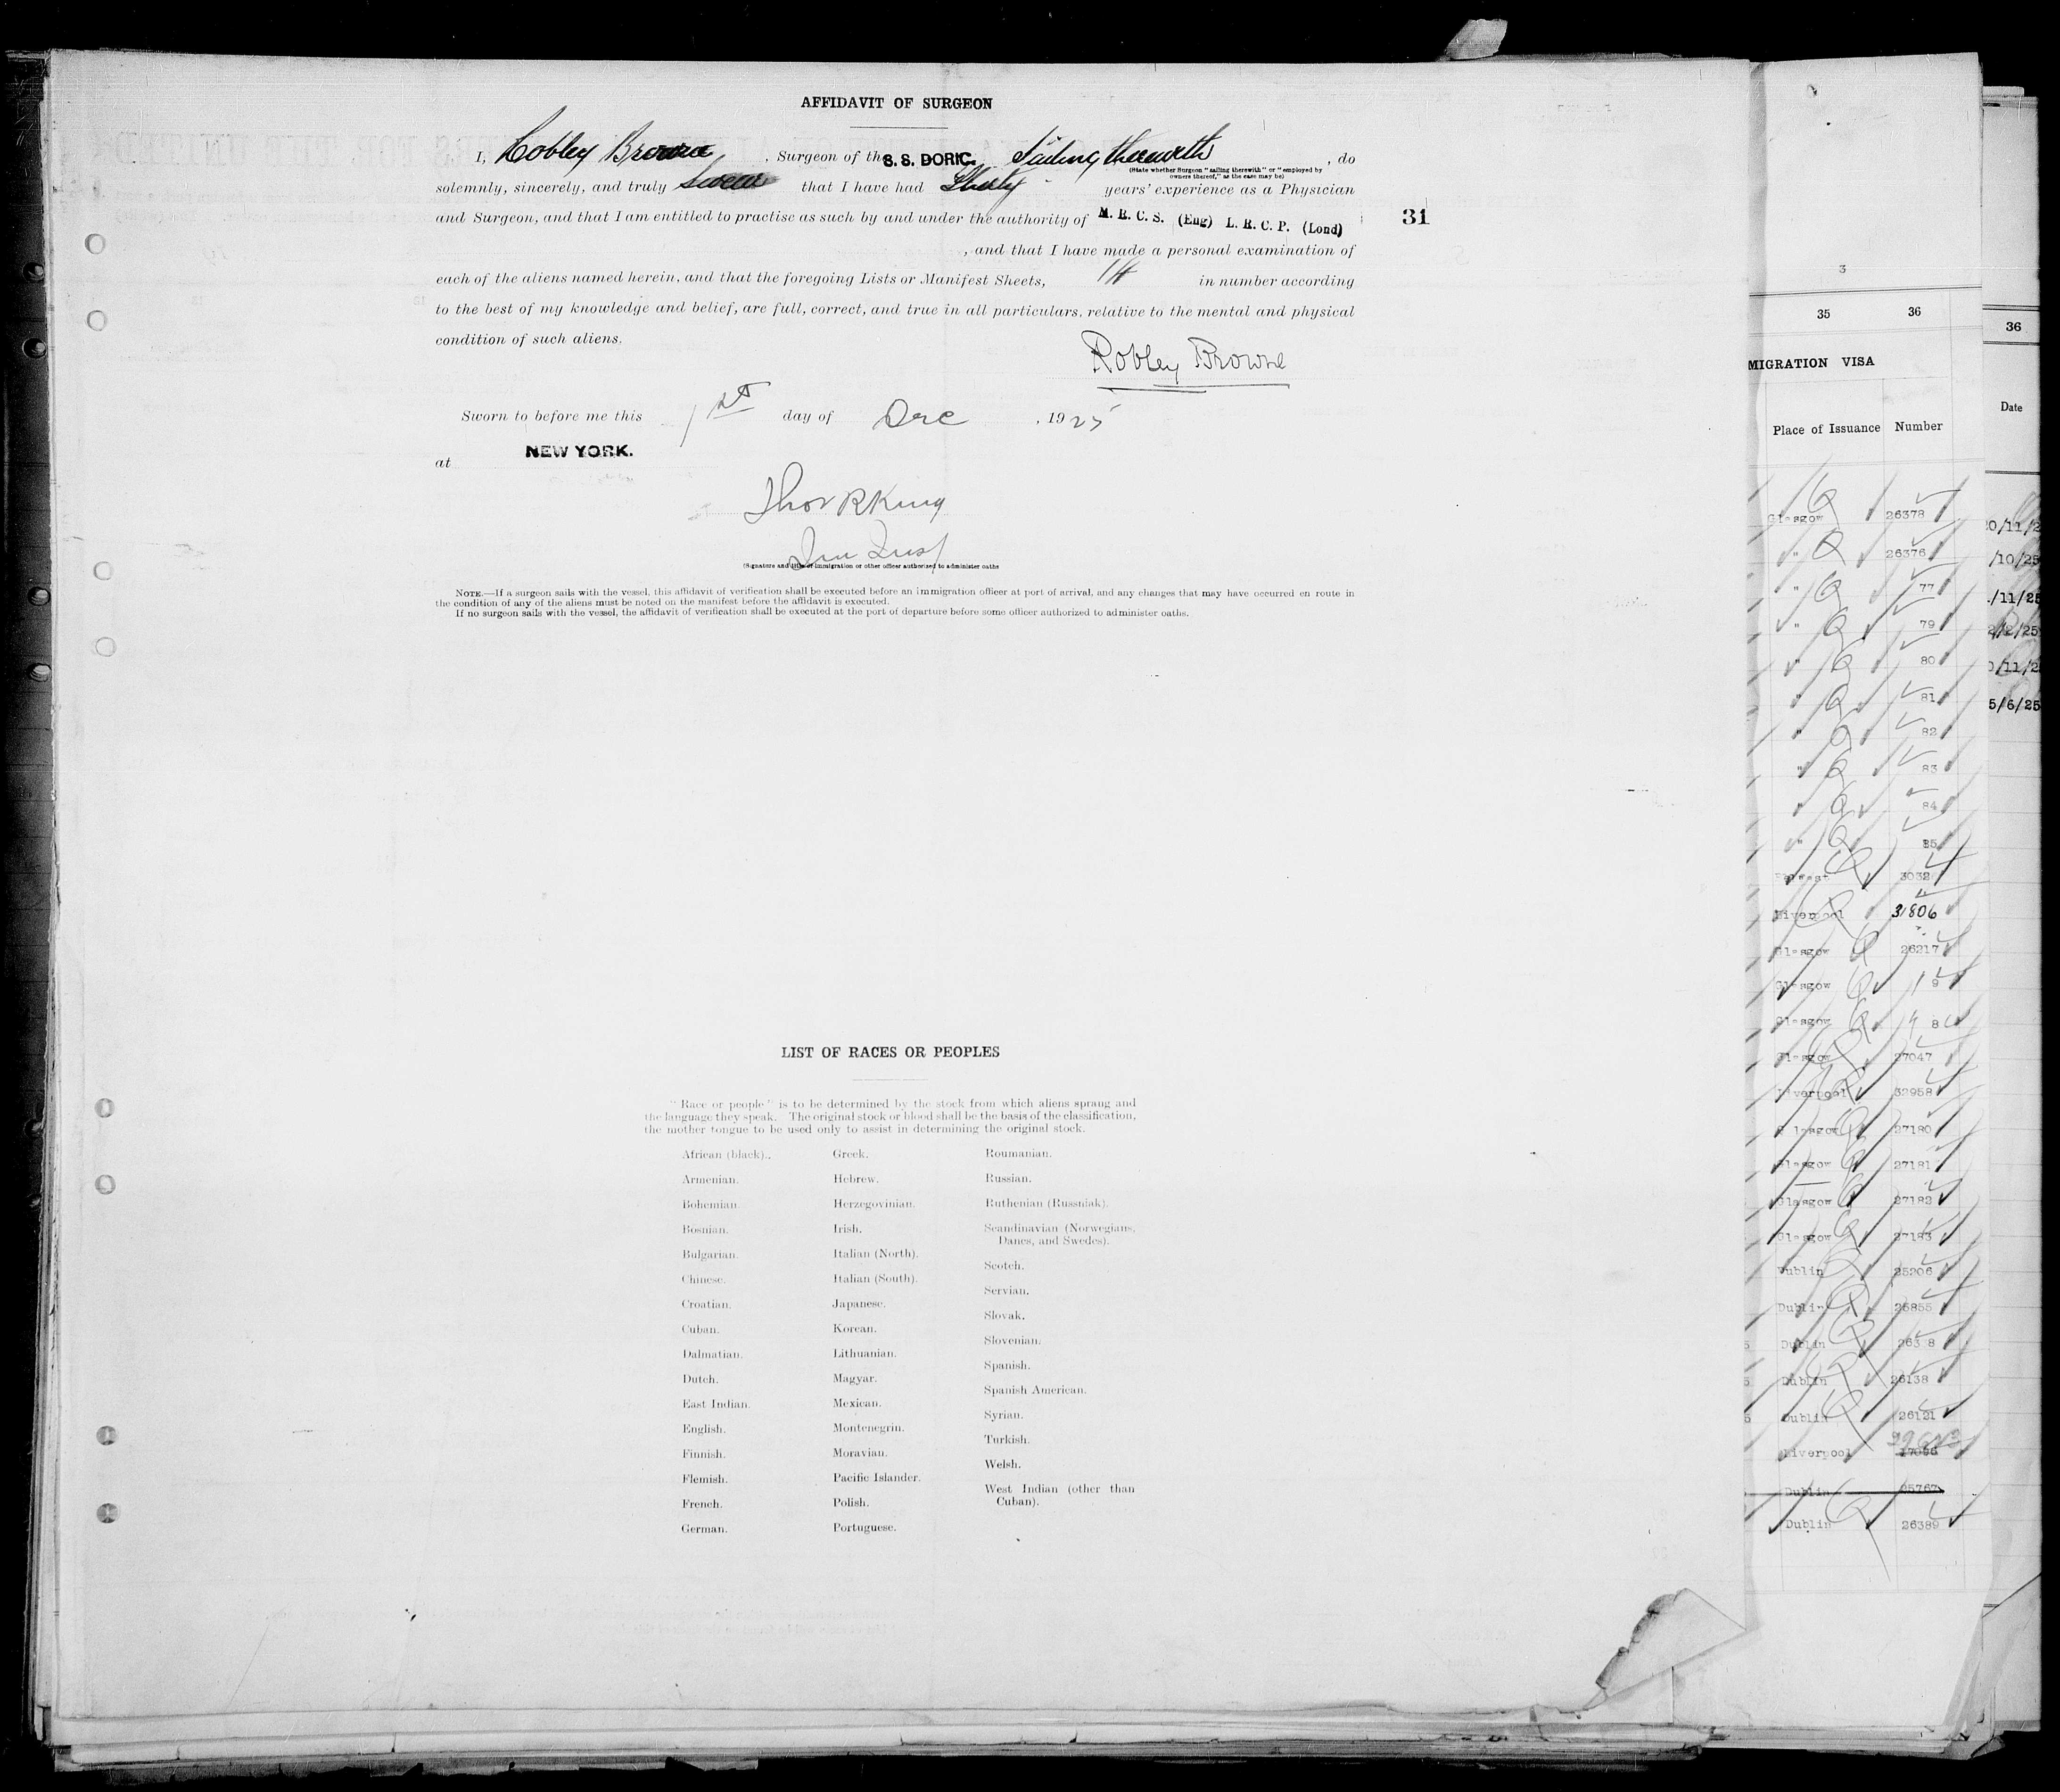 AFFIDAVIT OF SURGEON
I, Robley Browne, Surgeon of the S. S. DORIC. Sailing therewith, do
(State whether Surgeon "sailing therewith" or "employed by
owners thereof," as the case may be)
solemnly, sincerely, and truly Swear that I have had Thirty years' experience as a Physician
and Surgeon, and that I am entitled to practise as such by and under the authority of M. R. C. S. (Eng) L. R. C. P. (Lond)
31
, and that I have made a personal examination of
each of the aliens named herein, and that the foregoing Lists or Manifest Sheets, 14 in number according
to the best of my knowledge and belief, are full, correct, and true in all particulars, relative to the mental and physical
condition of such aliens.
Robley Browne
Sworn to before me this 1st day of Dec, 1925
at NEW YORK.
Thos R King
(Signature and title of immigration or other officer authorised to administer oaths
NOTE.—If a surgeon sails with the vessel, this affidavit of verification shall be executed before an immigration officer at port of arrival, and any changes that may have occurred en route in
the condition of any of the aliens must be noted on the manifest before the affidavit is executed.
If no surgeon sails with the vessel, the affidavit of verification shall be executed at the port of departure before some officer authorized to administer oaths.
LIST OF RACES OR PEOPLES
"Race or people" is to be determined by the stock from which aliens sprang and
the language they speak. The original stock or blood shall be the basis of the classification,
the mother tongue to be used only to assist in determining the original stock.
African (black).
Armenian.
Bohemian.
Bosnian.
Bulgarian.
Chinese.
Croatian.
Cuban.
Dalmatian.
Dutch.
East Indian.
English.
Finnish.
Flemish.
French.
German.
Greek.
Hebrew.
Herzegovinian.
Irish.
Italian (North).
Italian (South).
Japanese.
Korean.
Lithuanian.
Magyar.
Mexican.
Montenegrin.
Moravian.
Pacific Islander.
Polish.
Portuguese.
Roumanian.
Russian.
Ruthenian (Russniak).
Scandinavian (Norwegians,
Danes, and Swedes).
Scotch.
Servian.
Slovak.
Slovenian.
Spanish.
Spanish American.
Syrian.
Turkish.
Welsh.
West Indian (other than
Cuban).
3
35 36
MIGRATION VISA
Place of Issuance Number
Glasgow 26378
" 26376
" 77
" 79
" 80
" 81
" 82
" 83
" 84
" 85
Belfast
Liverpool 31806
Glasgow 26217
Glasgow 19
Glasgow 8
Glasgow 27047
Liverpool 32958
Glasgow 27180
Glasgow 27181
Glasgow 27182
Glasgow 27183
Dublin 25206
Dublin 25855
Dublin
Dublin 26138
Dublin 26121
Liverpool
Dublin 25767
Dublin 26389
36
Date
0/11/2
/10/25
/11/25
2/2/25
0/11/2
5/6/25